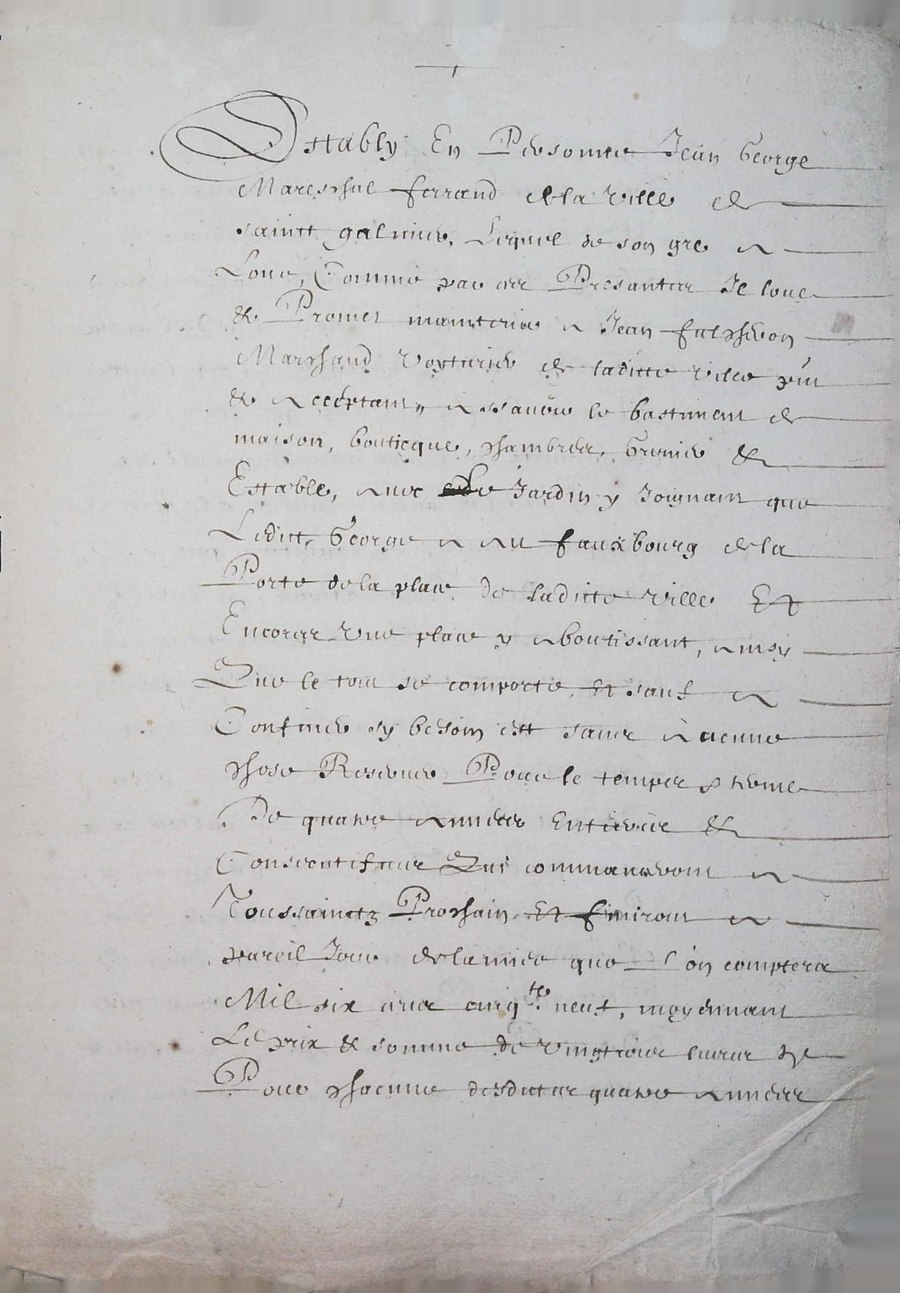 Estably En Personne Jean George
Mareschal ferrand de la ville de
sainct galmier, Lequel de son gre a
Loué, Comme par ces Presantes Il loue
& Promet maintenir a Jean falcheron
Marchand Voyturier de laditte ville pnt
& acceptant, assavoir le bastiment de
maison, bouticque, chambres, Grenier &
Estable, avec le Jardin y Joignant que
Ledict George a au fauxbourg de la
Porte de la place de laditte ville Et
Encores Une place y aboutissant, ainsy
Que le tout se comporte, et sauf a
Confiner sy besoin est sans aucune
chose Reserver Pour le temps & terme
De quatre années Entieres &
Consecutifves Qui commanceront a
Toussainctz Prochain Et finiront a
pareil Jour de lannee que l'on comptera
Mil six cens cinq.te neuf, moyennant
Le prix & somme de vingt livres
Pour chacune desdictes quatre années